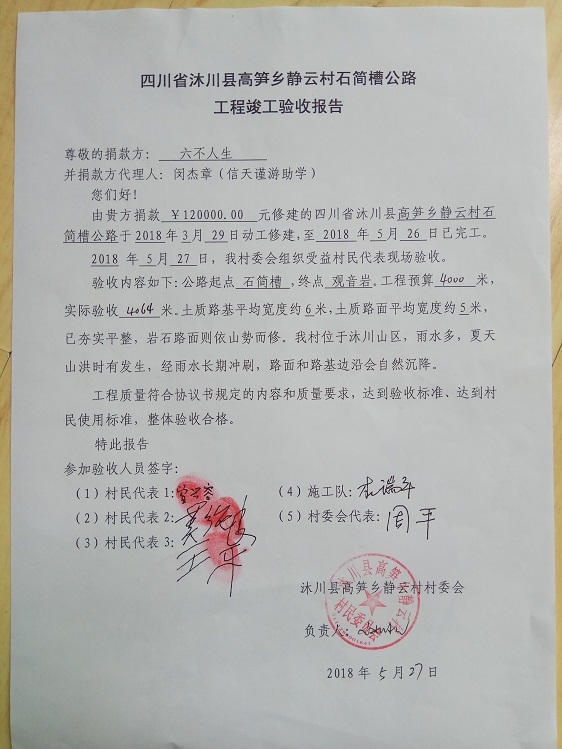 四川省沐川县高笋乡静云村石筒槽公路
工程竣工验收报告
尊敬的捐款方： 六不人生
并捐款方代理人：闵杰章（信天谨游助学）
您们好！
由贵方捐款 ￥120000.00 元修建的四川省沐川县高笋乡静云村石
筒槽公路于2018年3月 29日动工修建,至 2018 年 5月 26 日已完工。
2018 年 5月 27 日，我村委会组织受益村民代表现场验收。
验收内容如下:公路起点 石筒槽 ,终点 观音岩。工程预算 4000 米，
实际验收 4064 米。土质路基平均宽度约 6 米,土质路面平均宽度约 5 米，
已夯实平整，岩石路面则依山势而修。我村位于沐川山区，雨水多，夏天
山洪时有发生，经雨水长期冲刷，路面和路基边沿会自然沉降。
工程质量符合协议书规定的内容和质量要求，达到验收标准、达到村
民使用标准，整体验收合格。
特此报告
参加验收人员签字：
（1）村民代表 1:
（2）村民代表 2:
（3）村民代表 3: 王平
（4）施工队: 杜瑞平
（5）村委会代表: 周平
沐川县高笋乡静云村村委会
沐川县高笋乡静云村
村民委员会
负责人：
2018 年 5 月 27 日